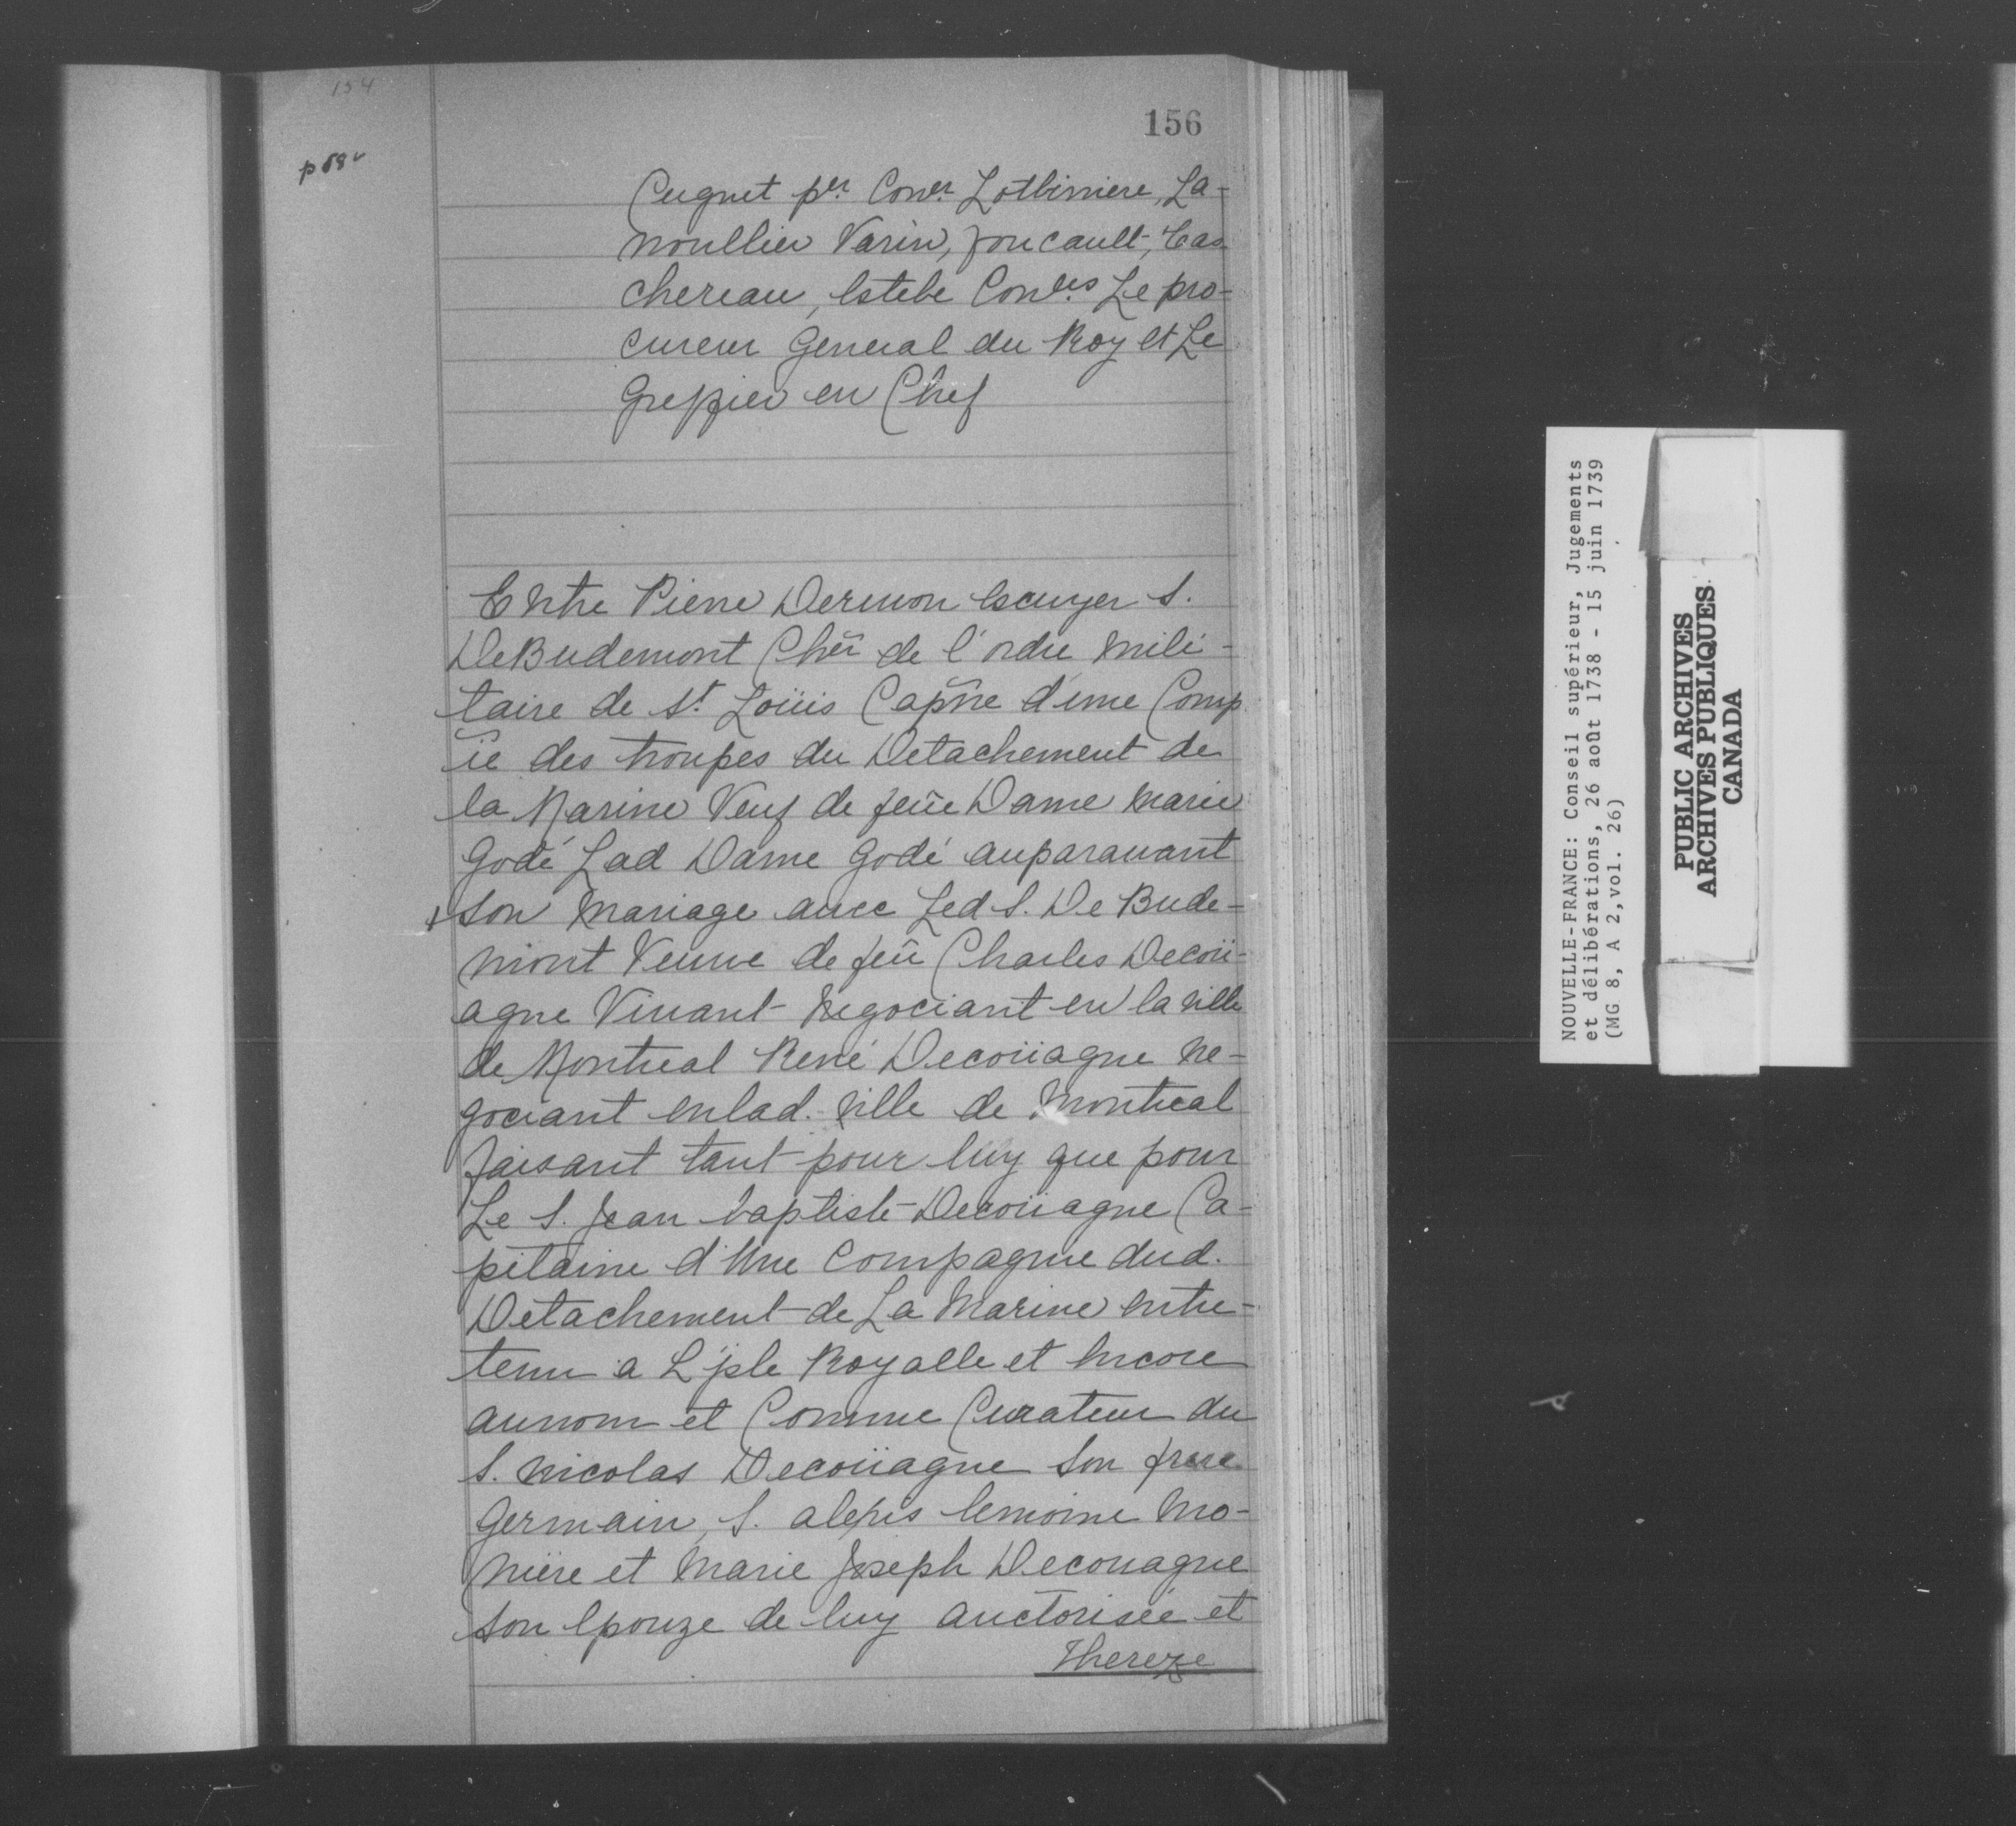 154
156
p 58v
Cugnet per Coner Lotbiniere, La-
noullier Varin, foucault, Tas
chereau, Estebe Conlers Le pro-
cureur General du Roy et Le
Greffier en Chef
Entre Pierre Dermon Escuyer S.
DeBudemont Cher de l'ordre mili-
taire de St. Loüis Capne d'une Comp
ie des troupes du Detachement de
la Marine Veuf de feüe Dame Marie
Godé Lad Dame Godé auparauant
son Mariage auec Led S. De Bude-
mont Veuue de feü Charles Decoü-
agne Viuant Negociant en la Ville
de Montreal René Decoüagne Ne-
gociant enlad. Ville de Montreal
faisant tant pour luy que pour
Le S. Jean baptiste Decoüagne Ca-
pitaine d'Une Compagnie dud.
Detachement de La Marine entre-
tenu a L'jsle Royalle et Encore
aunom et Comme Curateur du
S. Nicolas Decoüagne son frere
Germain, S. alexis lemoine Mo-
niere et Marie Joseph Decouagne
son Epouze de luy auctorisée et
Thereze
NOUVELLE-FRANCE: Conseil supérieur, Jugements
et délibérations, 26 août 1738 - 15 juin 1739
(MG 8, A 2,vol. 26)
PUBLIC ARCHIVES
ARCHIVES PUBLIQUES
CANADA